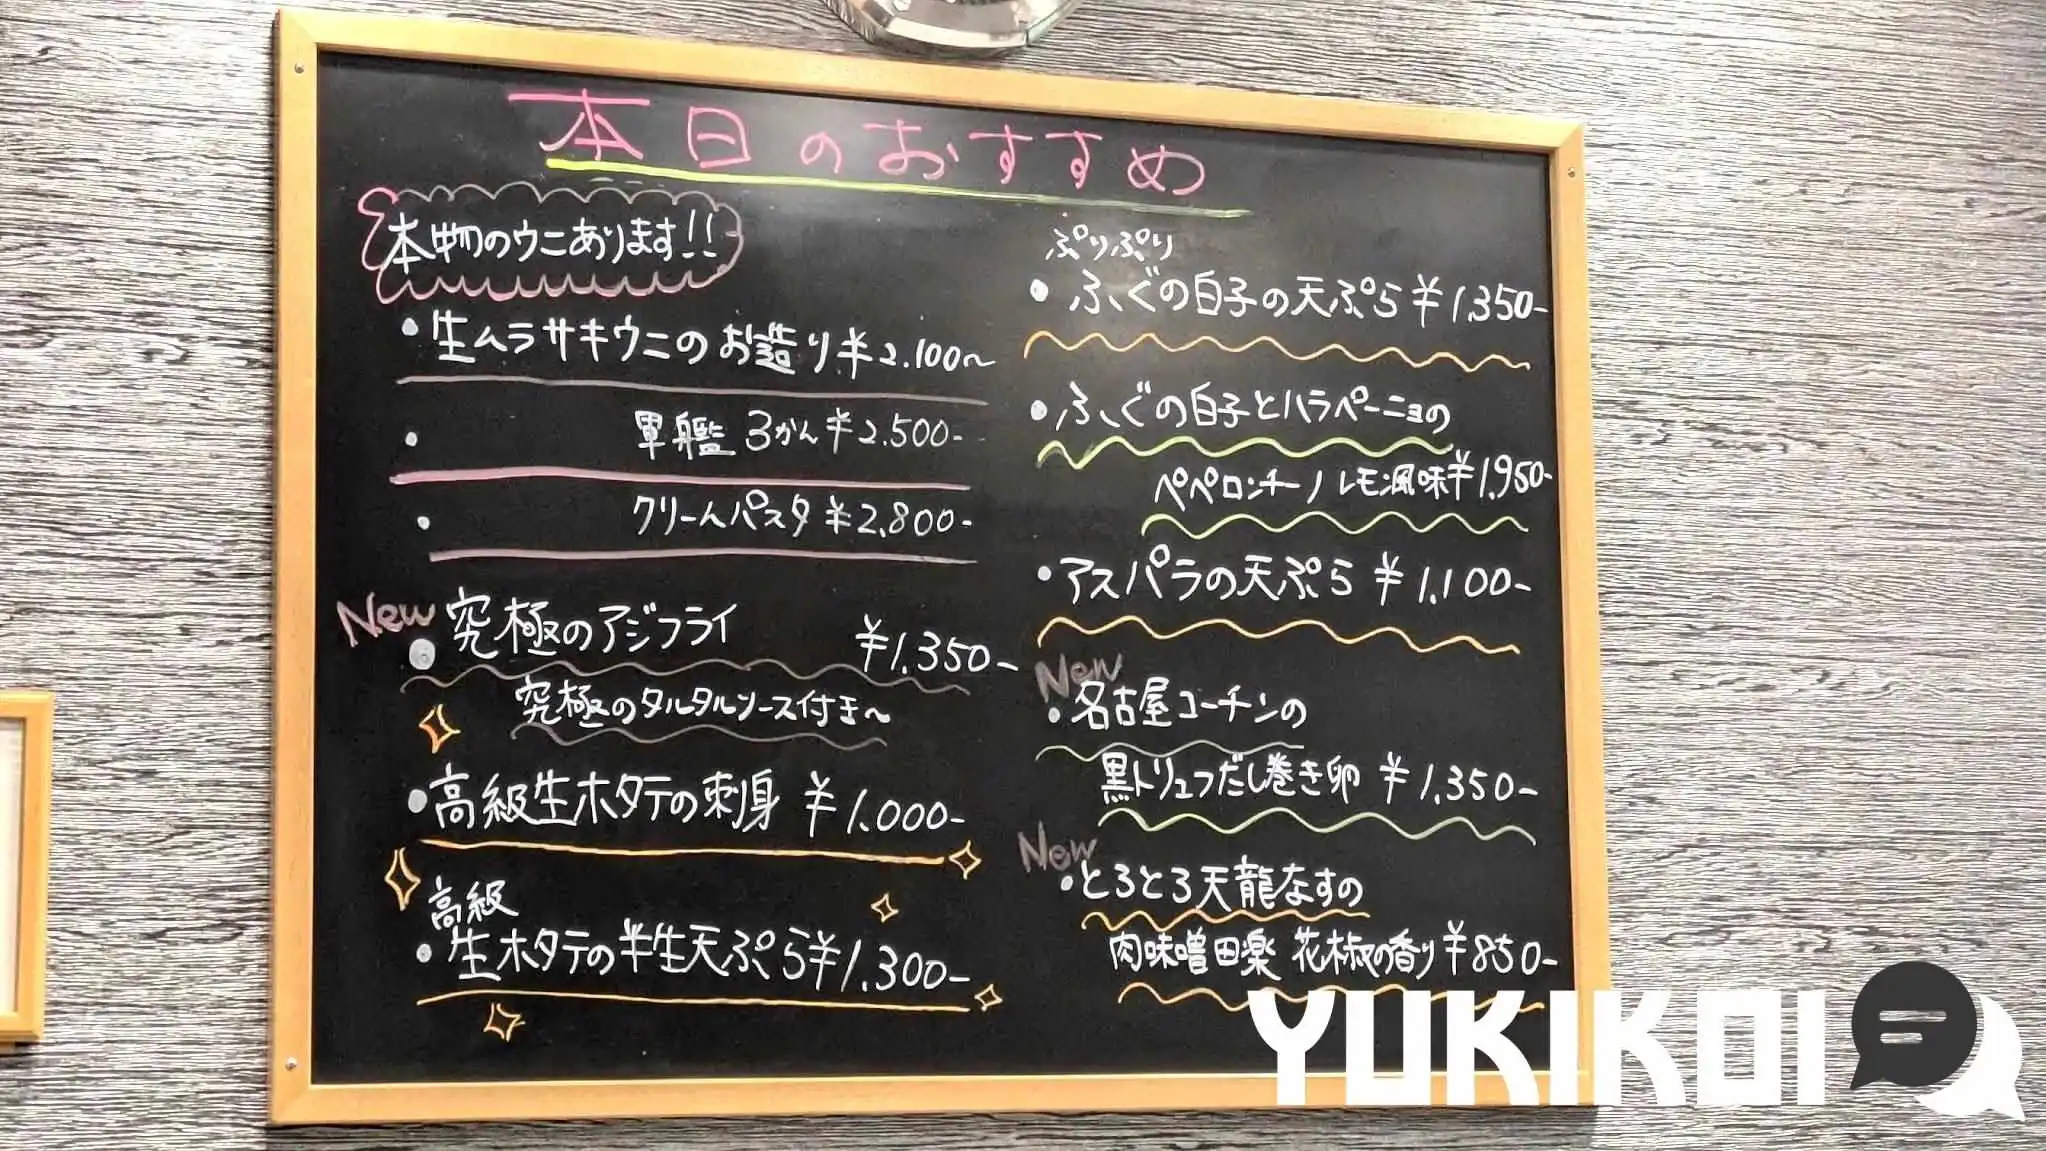 本日のおすすめ
本物のウニあります!!
・生ムラサキウニのお造り ¥2.100〜
・軍艦 3かん ¥2.500-
・クリームパスタ ¥2.800-
New
・究極のアジフライ ¥1.350-
究極のタルタルソース付き〜
・高級生ホタテの刺身 ¥1.000-
高級
・生ホタテの半生天ぷら ¥1.300-
ぷりぷり
・ふぐの白子の天ぷら ¥1.350-
・ふぐの白子とハラペーニョの
ペペロンチーノ レモン風味 ¥1.950-
・アスパラの天ぷら ¥1.100-
New
・名古屋コーチンの
黒トリュフだし巻き卵 ¥1.350-
New
・とろとろ天龍なすの
肉味噌田楽 花椒の香り ¥850-
YUKIKOI